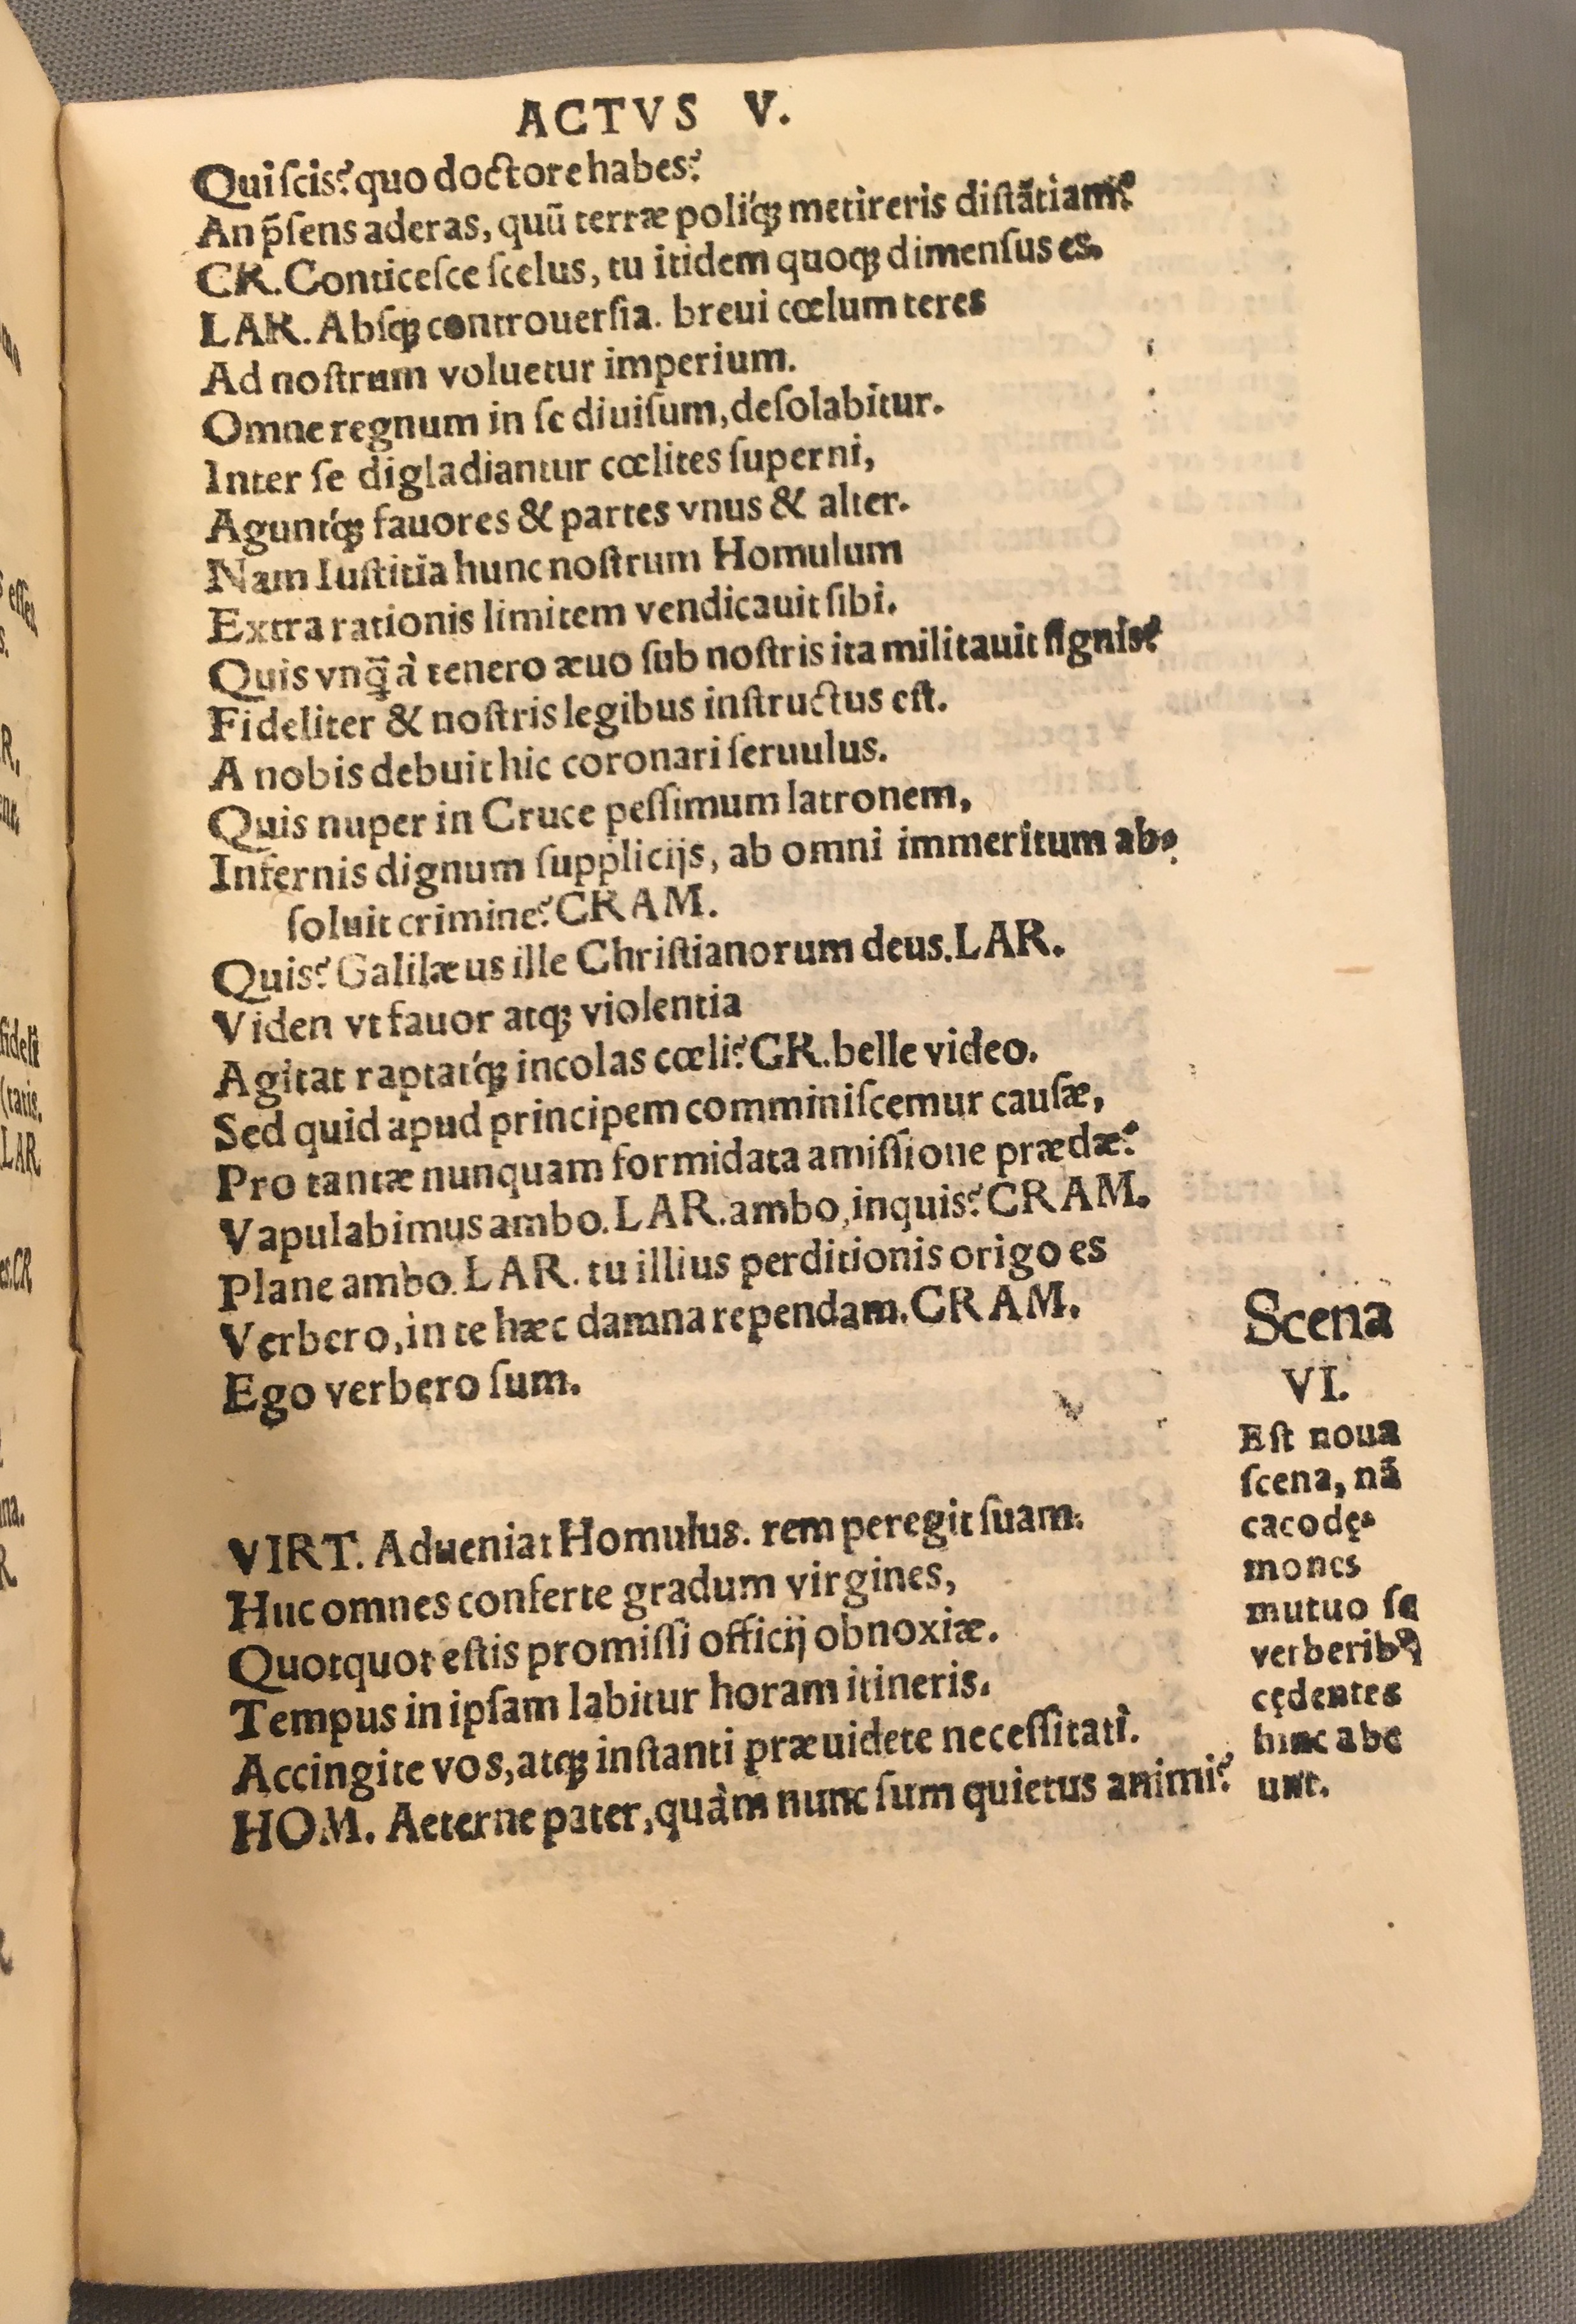 ACTVS V.
Qui ſcis? quo doctore habes?
An p̄ſens aderas, quū terræ poliq́ꝫ metireris diſtātiam?
CR. Conticeſce ſcelus, tu itidem quoqꝫ dimenſus es.
LAR. Abſqꝫ controuerſia. breui cœlum teres
Ad noſtrum voluetur imperium.
Omne regnum in ſe diuiſum, deſolabitur.
Inter ſe digladiantur cœlites ſuperni,
Aguntq́ꝫ fauores & partes vnus & alter.
Nam Iuſtitia hunc noſtrum Homulum
Extra rationis limitem vendicauit ſibi.
Quis vnq̄ à tenero æuo ſub noſtris ita militauit ſignis?
Fideliter & noſtris legibus inſtructus eſt.
A nobis debuit hic coronari ſeruulus.
Quis nuper in Cruce peſſimum latronem,
Infernis dignum ſupplicijs, ab omni immeritum ab-
ſoluit crimine? CRAM.
Quis? Galilæus ille Chriſtianorum deus. LAR.
Viden vt fauor atqꝫ violentia
Agitat raptatq́ꝫ incolas cœli? CR. belle video.
Sed quid apud principem comminiſcemur cauſæ,
Pro tantæ nunquam formidata amiſſione prædæ?
Vapulabimus ambo. LAR. ambo, inquis? CRAM.
Plane ambo. LAR. tu illius perditionis origo es
Verbero, in te hæc damna rependam. CRAM.
Ego verbero ſum.
Scena
VI.
Eſt noua
ſcena, nā
cacodę-
mones
mutuo ſe
verberibꝰ
cędentes
hinc abe
unt.
VIRT. Adueniat Homulus. rem peregit ſuam.
Huc omnes conferte gradum virgines,
Quotquot eſtis promiſſi officij obnoxiæ.
Tempus in ipſam labitur horam itineris.
Accingite vos, atqꝫ inſtanti præuidete neceſſitati.
HOM. Aeterne pater, quàm nunc ſum quietus animi?